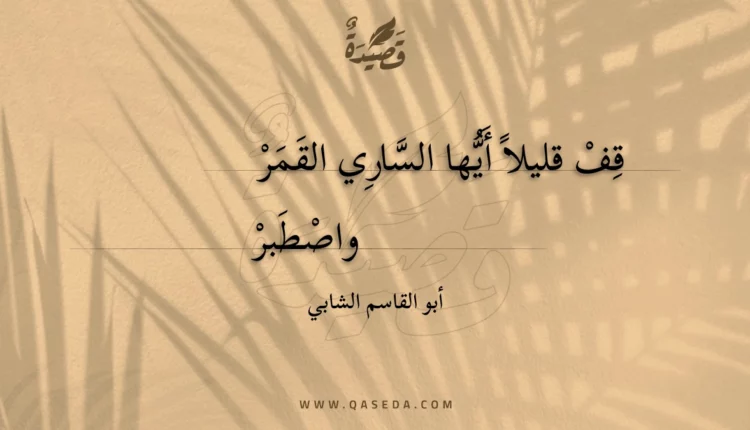 قَصِيْدَةٌ
قِفْ قليلاً أَيُّها السَّارِي القَمَرْ
واصْطَبرْ
أبو القاسم الشابي
WWW.QASEDA.COM